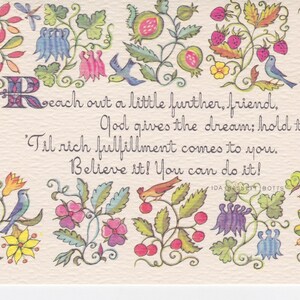 Reach out a little further, friend,
God gives the dream; hold t
'Til rich fulfillment comes to you.
Believe it! You can do it!